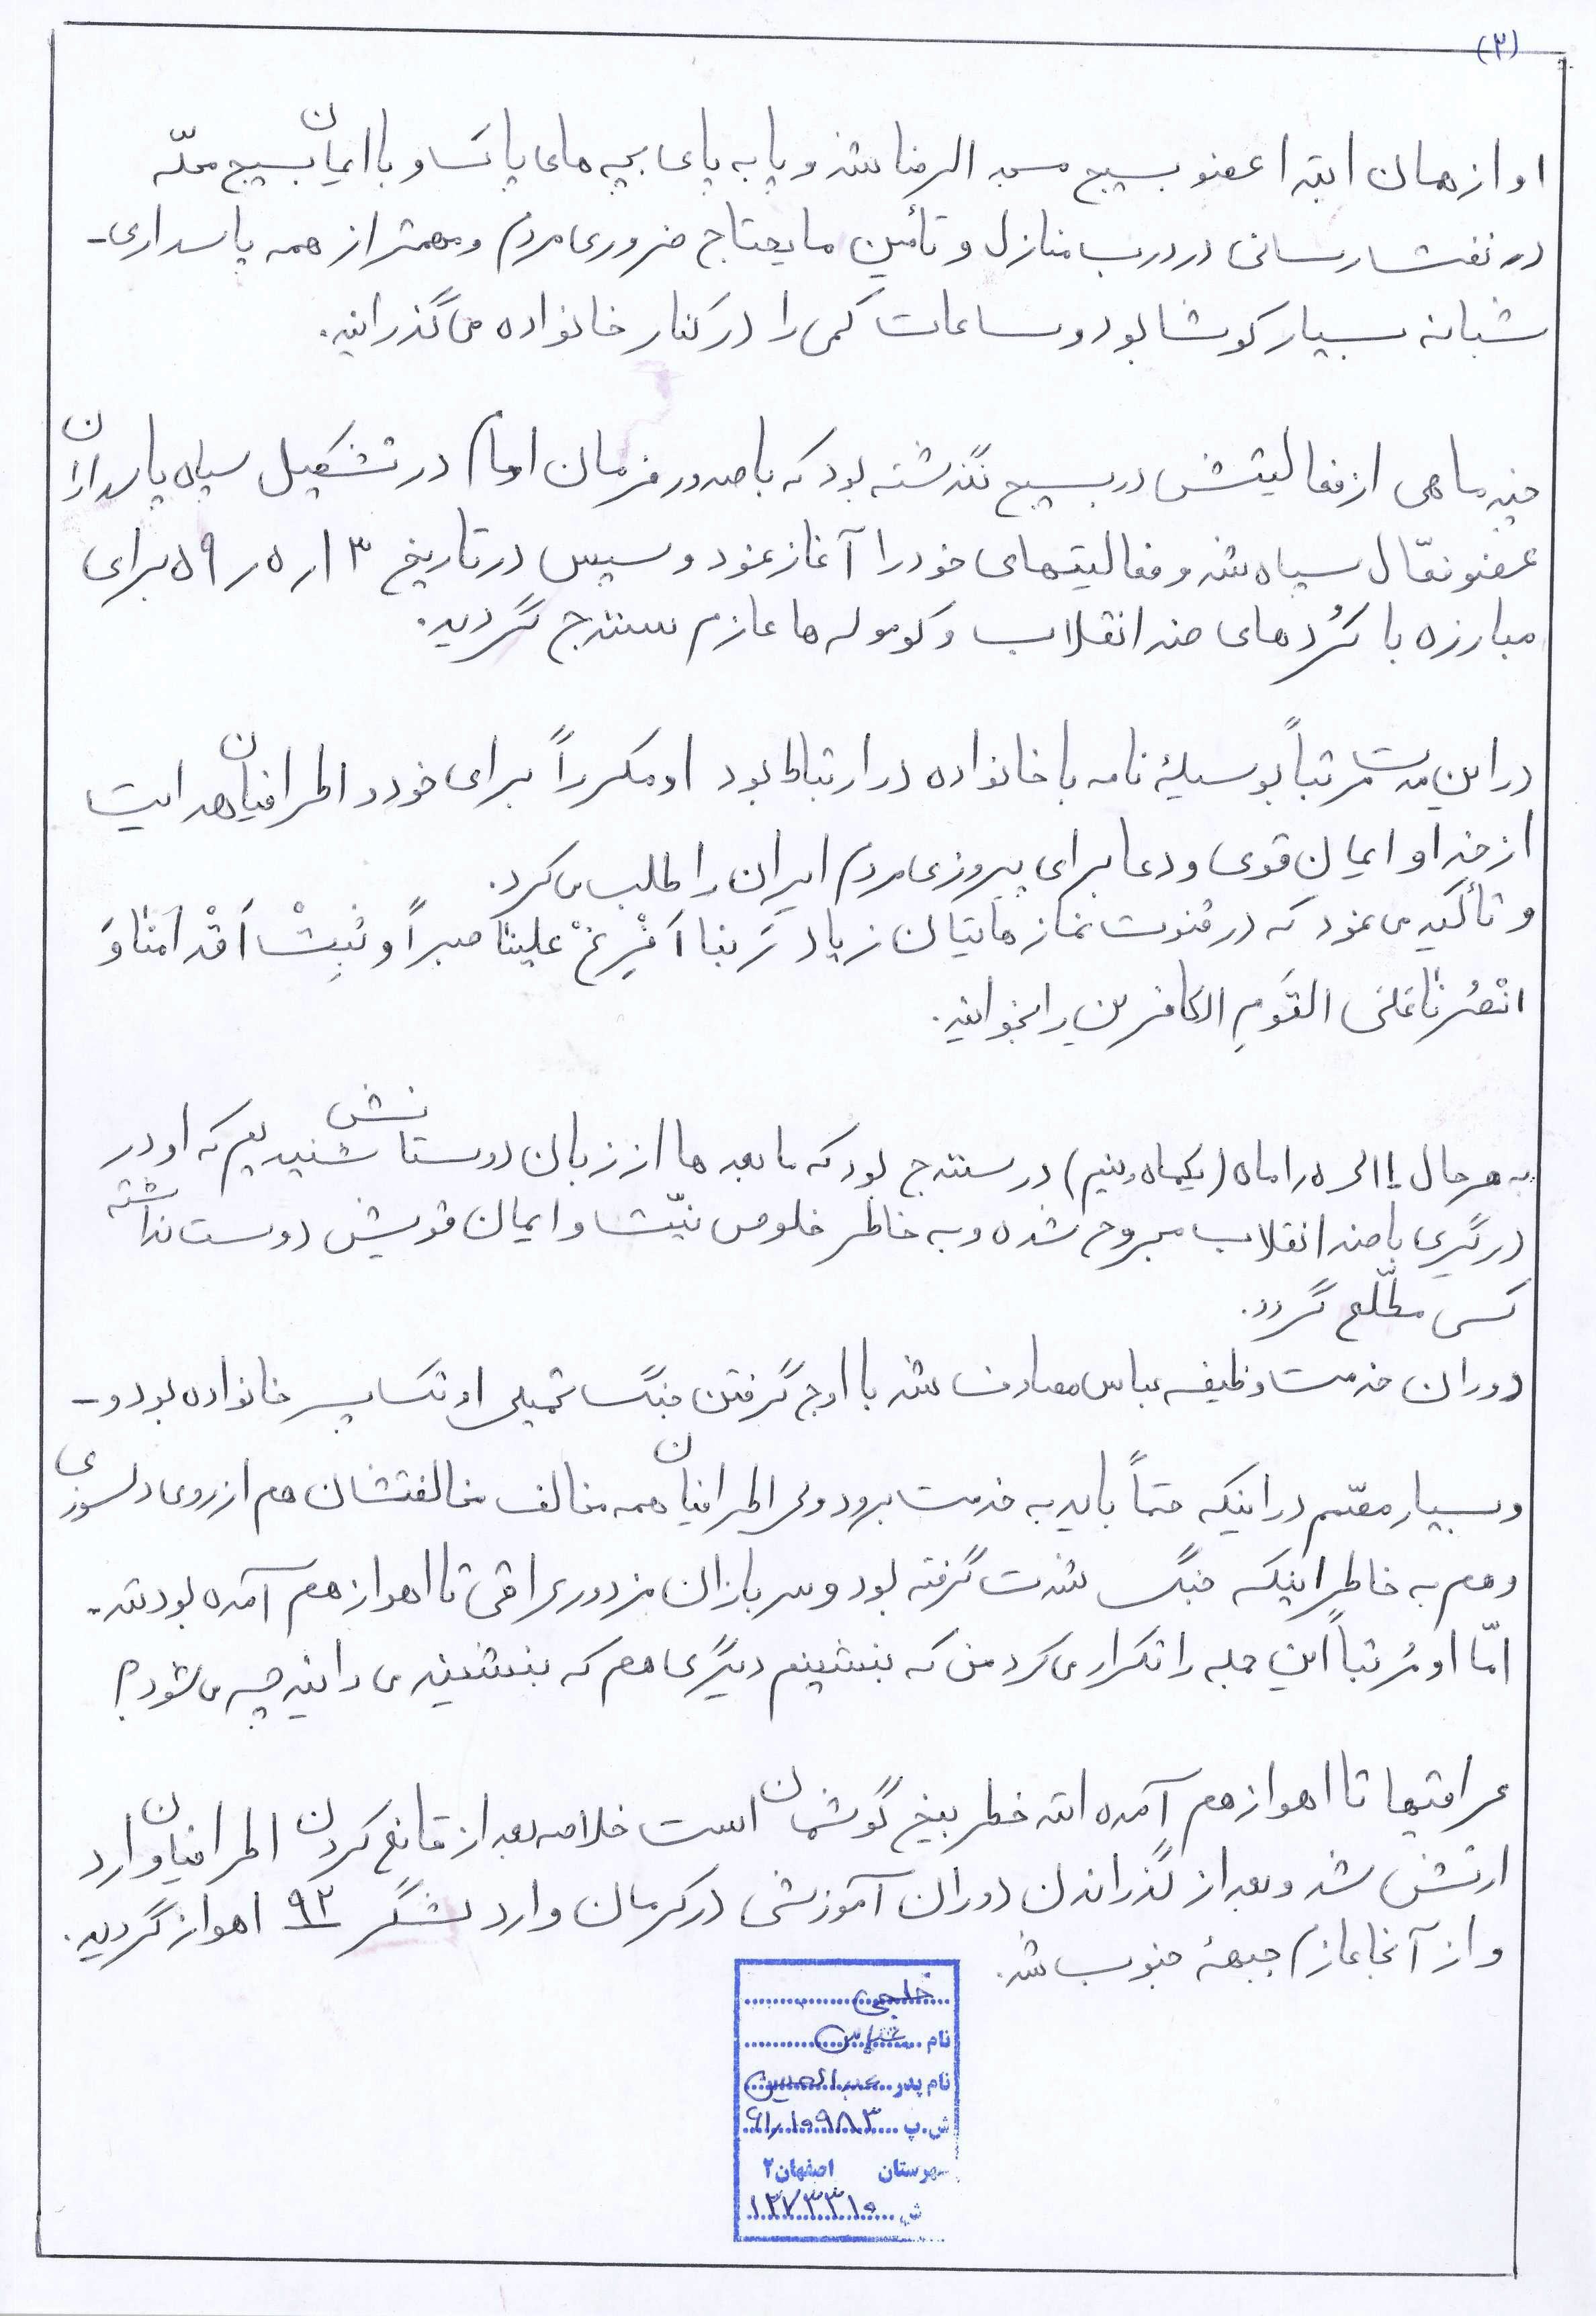 (۳)
او از همان ابتدا عضو بسیج مسجد الرضا شد و پا به پای بچه های پاک و با ایمان بسیج محلّه
در نفت رسانی در درب منازل و تأمین مایحتاج ضروری مردم و مهمتر از همه پاسداری-
شبانه بسیار کوشا بود و ساعات کمی را در کنار خانواده می گذرانید.
چند ماهی از فعالیتش در بسیج نگذشته بود که با صدور فرمان امام در تشکیل سپاه پاسداران
عضو فعّال سپاه شد و فعالیتهای خود را آغاز نمود و سپس در تاریخ ۱۳ر۵ر۵۹ برای
مبارزه با کُردهای ضد انقلاب و کوموله ها عازم سنندج گردید.
در این مدت مرتباً بوسیلهٔ نامه با خانواده در ارتباط بود او مکرراً برای خود و اطرافیان هدایت
از خدا و ایمان قوی و دعا برای پیروزی مردم ایران را طلب می کرد.
و تأکید می نمود که در قنوت نماز هایتان زیاد رَبنا اَفْرِغْ علینا صبراً و ثَبِتْ اَقْدامَنا وَ
انْصُرنا عَلَی القَومِ الکافرین را بخوانید.
به هر حال ۱ الی ۱/۵ ماه (یکماه ونیم) در سنندج بود که ما بعد ها از زبان دوستانش شنیدیم که او در
درگیری با ضد انقلاب مجروح شده و به خاطر خلوص نیّت و ایمان قویش دوست نداشته
کسی مطّلع گردد.
دوران خدمت وظیفه عباس مصادف شد با اوج گرفتن جنگ تحمیلی او تک پسر خانواده بود و-
و بسیار مصّمم در اینکه حتماً باید به خدمت برود ولی اطرافیان همه مخالف مخالفتشان هم از روی دلسوزی
و هم به خاطر اینکه جنگ شدت گرفته بود و سربازان مزدور عراقی تا اهواز هم آمده بودند-
امّا او مُرتباً این جمله را تکرار می کرد من که بنشینم دیگری هم که بنشیند می دانید چه می شود؟
عراقیها تا اهواز هم آمده اند خطر بیخ گوشمان است خلاصه بعد از قانع کردن اطرافیان وارد
ارتش شد و بعد از گذراندن دوران آموزشی در کرمان وارد لشگر ۹۲ اهواز گردید.
و از آنجا عازم جبههٔ جنوب شد.
خلجی
نام عباس
نام پدر عبدالحسین
ش.پ ۶۱٫۱۰۹۸۳
شهرستان اصفهان ۲
ش ۱۲۷۳۳۱۰